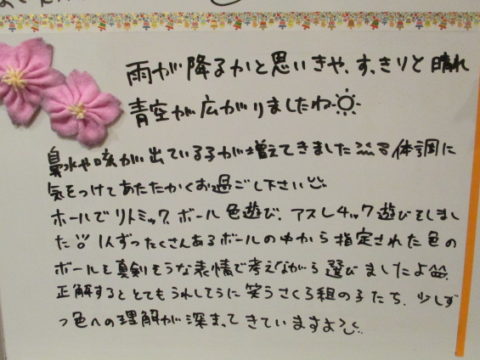 雨が降るかと思いきや、すっきりと晴れ
青空が広がりましたね
鼻水や咳が出ている子が増えてきました 体調に
気をつけてあたたかくお過ごし下さい
ホールでリトミック、ボール色遊び、アスレチック遊びをしまし
た 1人ずつたくさんあるボールの中から指定された色の
ボールを真剣そうな表情で考えながら選びましたよ
正解するととてもうれしそうに笑うさくら組の子たち、少しず
つ色への理解が深まってきていますよ